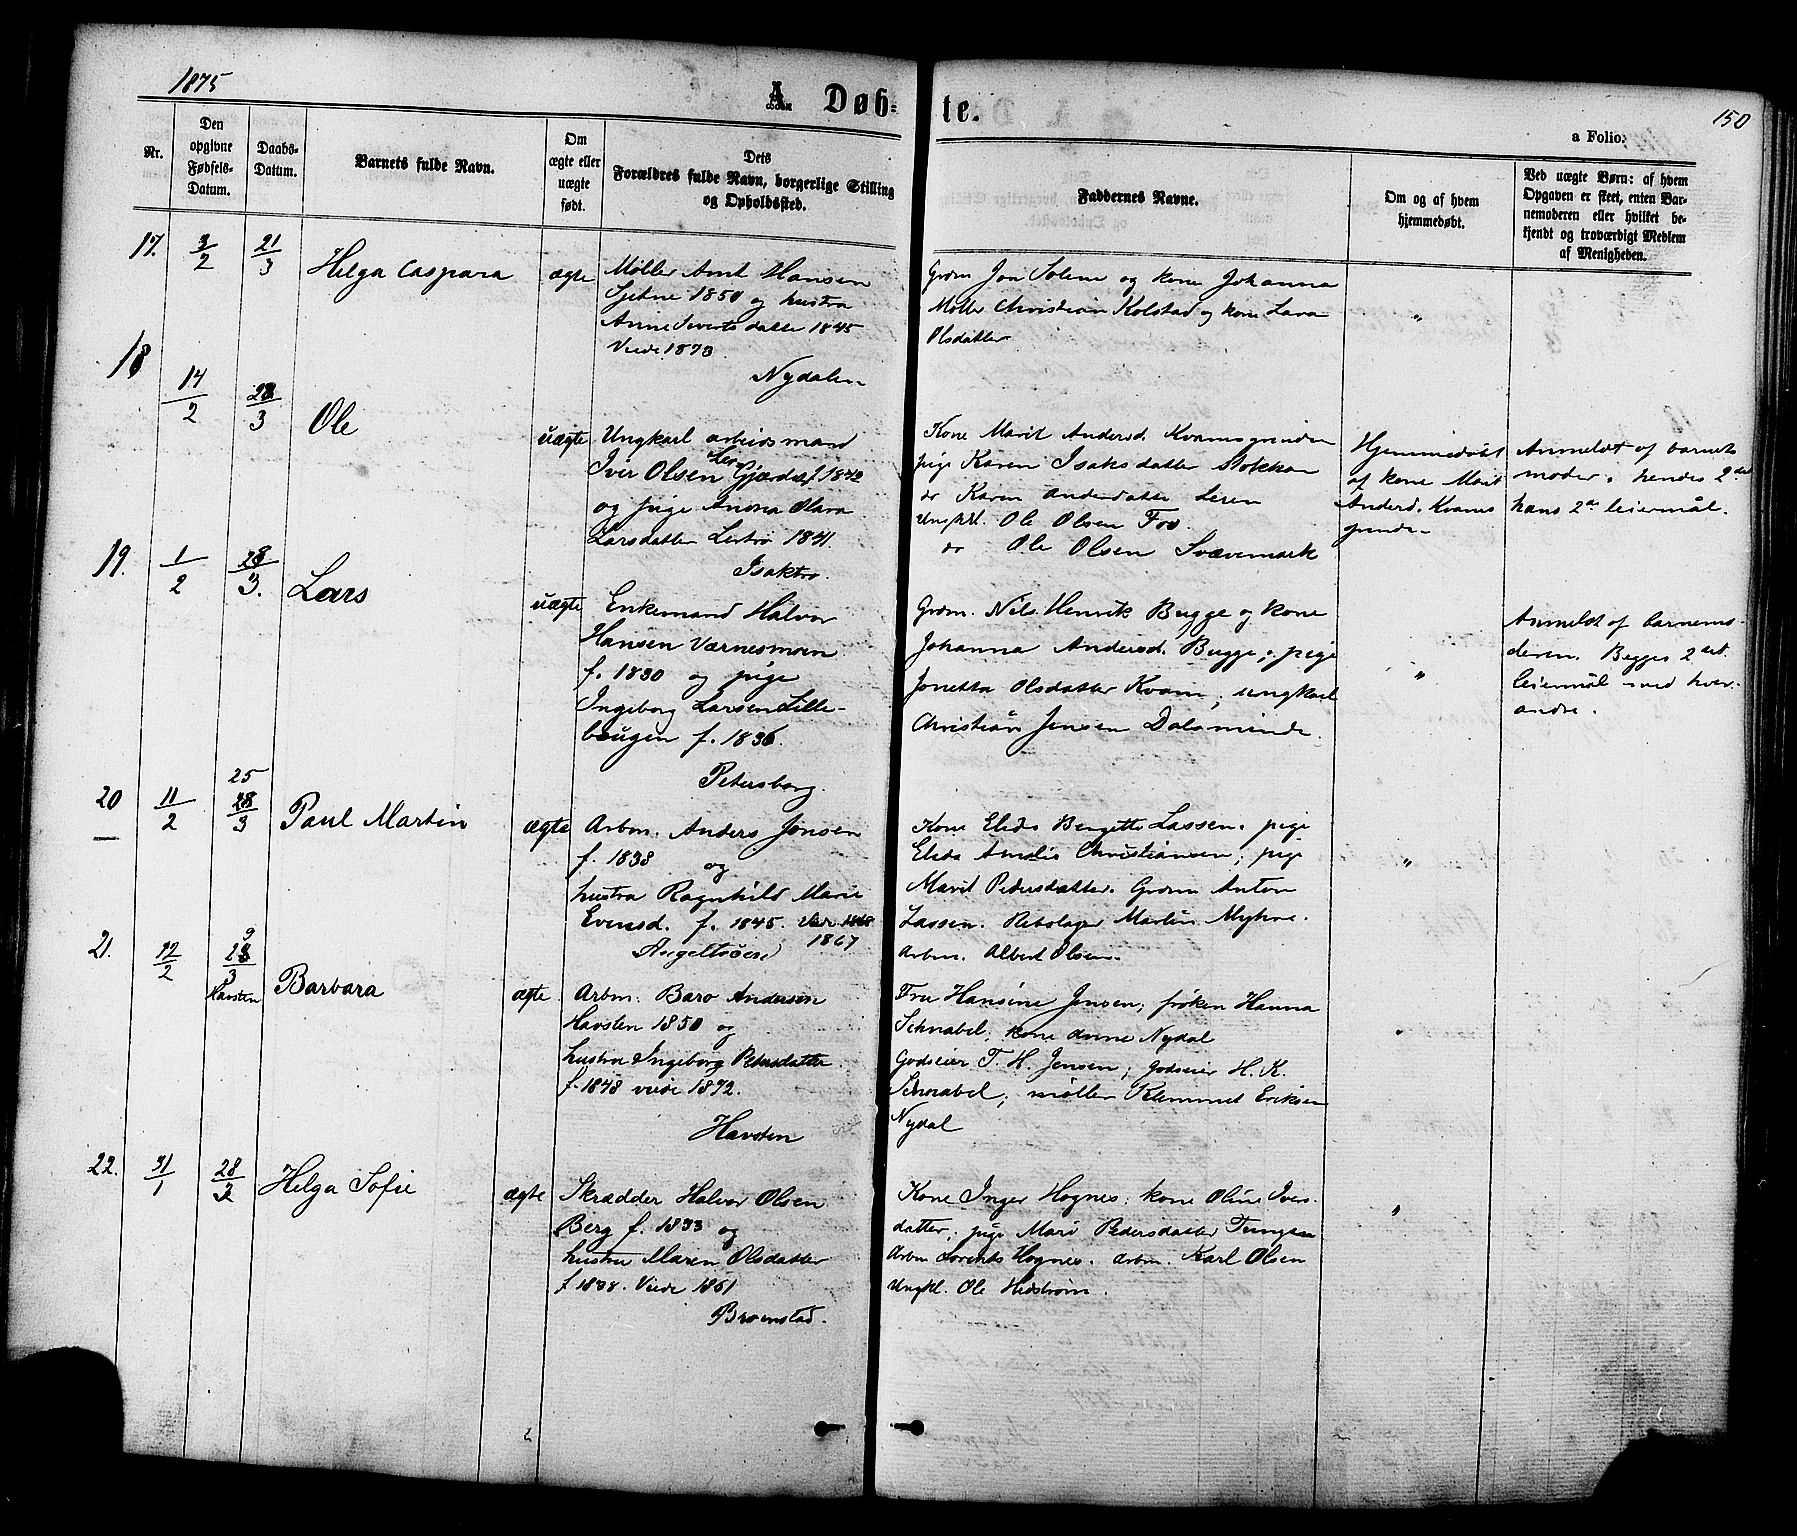 1875
A Døb-
te.
150
a Folio.
Nr.
Den
opgivne
Fødsels-
Datum.
Daabs-
Datum.
Barnets fulde Navn.
Om
ægte eller
uægte
født.
Dets
Forældres fulde Navn, borgerlige Stilling
og Opholdssted.
Faddernes Navne.
Om og af hvem
hjemmedøbt.
Ved uægte Børn: af hvem
Opgaven er skeet, enten Bar-
nemoderen eller hvilket be-
kjendt og troværdigt Medlem
af Menigheden.
17.
3/2
21/3
Helga Caspara
ægte
Møller Arnt Hansen
Sjetne 1850 og hustru
Anne Sivertsdatter 1845
Viede 1873
Nydalen
Grdm Jon Solem og kone Johanna
Møller Christian Kolstad og kone Lava
Olsdatter
"
18
14/2
28/3
Ole
uægte
Ungkarl arbeidsmand
Iver Olsen Gjærdet 1842
og pige Andrea Olava
Larsdatter 1841.
Isaktrø.
Kone Marit Andersd. Kvamsgrinden
pige Karen Isaksdatter Stokkan
do Karen Andersdatter Leren
Ungkl. Ole Olsen Fos.
do Ole Olsen Svævemark
Hjemmedøbt
af kone Marit
Andersd. Kvams
grinden
Anmeldt af barnets
moder. hendes 2det
hans 2det leiermål.
19.
1/2
28/3.
Lars
uægte
Enkemand Halvor
Hansen Værnesmoen
f. 1830 og pige
Ingeborg Larsen Lille-
haugen f. 1836.
Petersborg.
Grdm. Nils Henrik Bugge og kone
Johanna Andersd. Bugge; pige
Jonetta Olsdatter Kvam; ungkarl
Christian Jensen Dalsminde.
"
Anmeldt af barnemo-
deren. Begges 2det
leiermål med hver-
andre.
20
11/2
25
28/3
Paul Martin
ægte
Arbm. Anders Jonsen
f. 1838 og
hustru Ragnhild Marie
Evensd. f. 1845.
1867
Angeltrøen
Kone Elida Bergette Lassen. pige
Elida Amalie Christiansen; pige
Marit Pedersdatter. Grdm Anton
Lassen. Rebslager Martin Myhre.
Arbm. Albert Olsen.
"
21.
12/2
29/3
Havsten
Barbara
ægte
Arbm. Baro Andersen
Havsten 1850 og
hustru Ingeborg Petersdatter
f. 1848 viede 1872.
Havsten
Fru Hansine Jensen; frøken Hanna
Schnabel; kone Anne Nydal
Godseier T. H. Jensen; Godseier H. K.
Schnabel; møller Klemmet Eriksen
Nydal
"
22.
31/1
28/3
Helga Sofie
ægte
Skrædder Halvor Olsen
Berg f. 1833 og
hustru Maren Olsdatter
f 1838. Viede 1861
Bromstad.
Kone Inger Hognes; kone Oline Ivers-
datter; pige Mari Pedersdatter Tungen
Arbm Lorents Hognes. Arbm. Karl Olsen
Ungkl. Ole Hedstrøm.
"